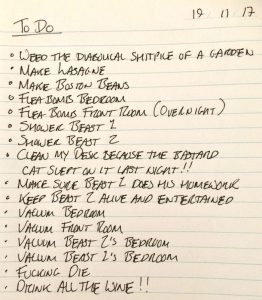 19/11/17
To Do
• Weed the diabolical shitpile of a garden
• Make Lasagne
• Make Boston Beans
• Flea bomb bedroom
• Flea bomb front room (overnight)
• Shower Beast 1
• Shower Beast 2
• Clean my desk because the bastard
cat slept on it last night!!
• Make sure Beast 1 does his homework
• Keep Beast 2 alive and entertained
• Vacuum Bedroom
• Vacuum Front Room
• Vacuum Beast 2's Bedroom
• Vacuum Beast 1's Bedroom
• Fucking Die
• Drink all the wine!!